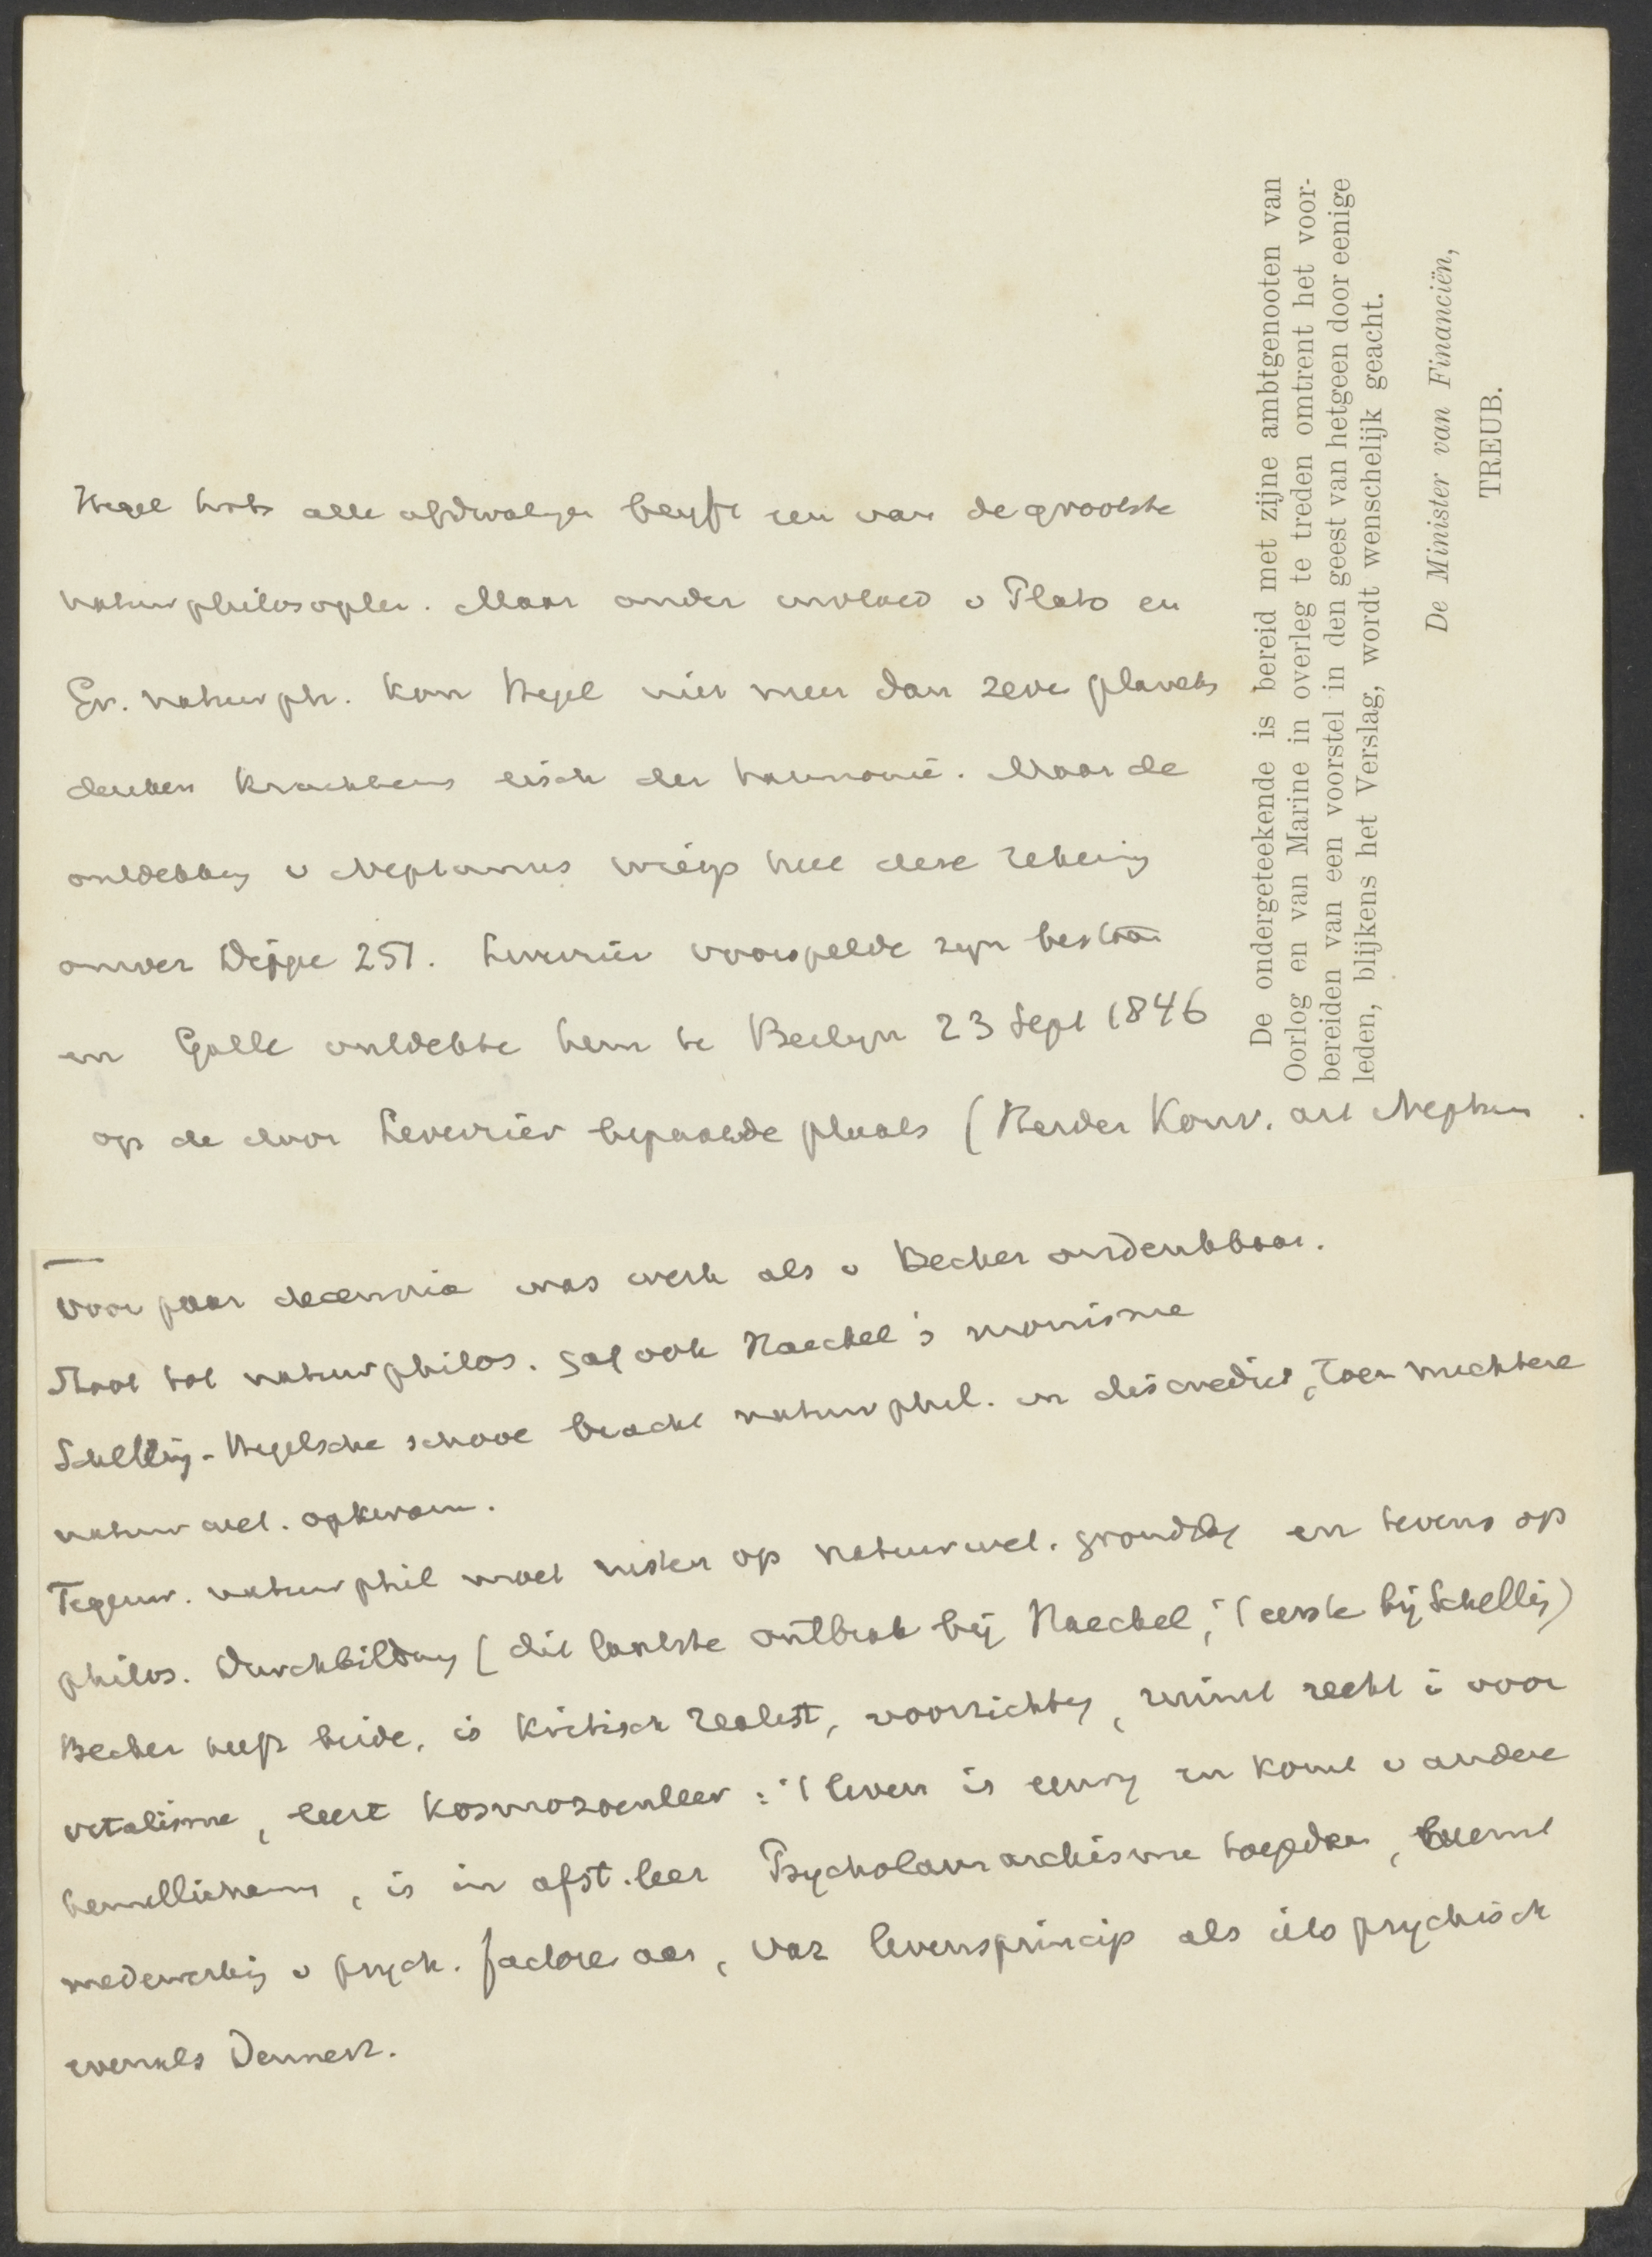 Hegel trots alle afdwalgn blyft een van de grootste
natuurphilosophen. Maar onder invloed v Plato en
Gr. natuurph. kon Hegel niet meer dan zeve planets
denken krachtens eisch der harmonie. Maar de
ontdekking v Neptunus wierp heel deze rekening
omver Dippe 251. Leverrier voorspelde zyn bestaan
en Galle ontdekte hem te Berlyn 23 Sept 1846
op de door Leverrier bepaalde plaats (Herder Konv. art Neptun
De ondergeteekende is bereid met zijne ambtgenooten van
Oorlog en van Marine in overleg te treden omtrent het voor-
bereiden van een voorstel in den geest van hetgeen door eenige
leden, blijkens het Verslag, wordt wenschelijk geacht.
De Minister van Financiën,
TREUB.
Voor paar decennia was werk als v Becher ondenkbaar.
Moed tot natuurphilos. gaf ook Haeckel's monisme
Schelling-Hegelsche school bracht natuurphil. in discrediet, toen nuchtere
natuurwet. opkwam.
Tegenw. natuurphil moet rusten op natuurwet. grondslag en tevens op
philos. Durchbildung (dit laatste ontbrak bij Haeckel, 't eerste bij Schelling)
Becher heeft beide, is kritisch realist, voorzichtig, ruimt recht i voor
vitalisme, leert kosmozoenleer: 't leven is eeuwig en komt v andere
hemellichamen, is in afst.leer Psycholamarckisme toegedaan, neemt
medewerking v psych. factoren aan, vat levensprincip als iets psychisch
evenals Dennert.